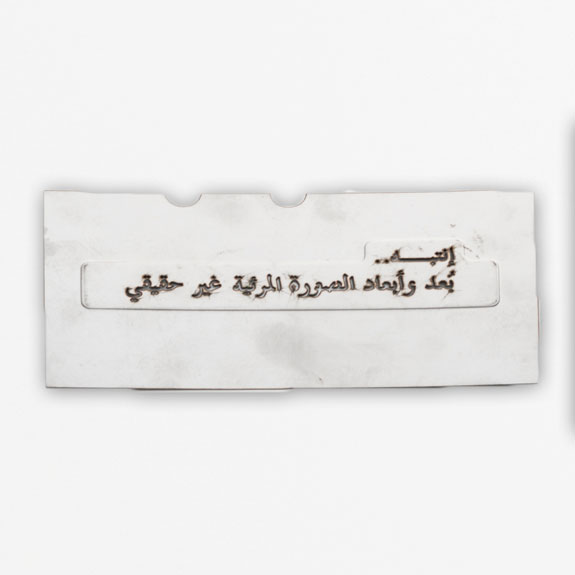 إنتبـــه..
بُعد وأبعاد الصورة المرئية غير حقيقي